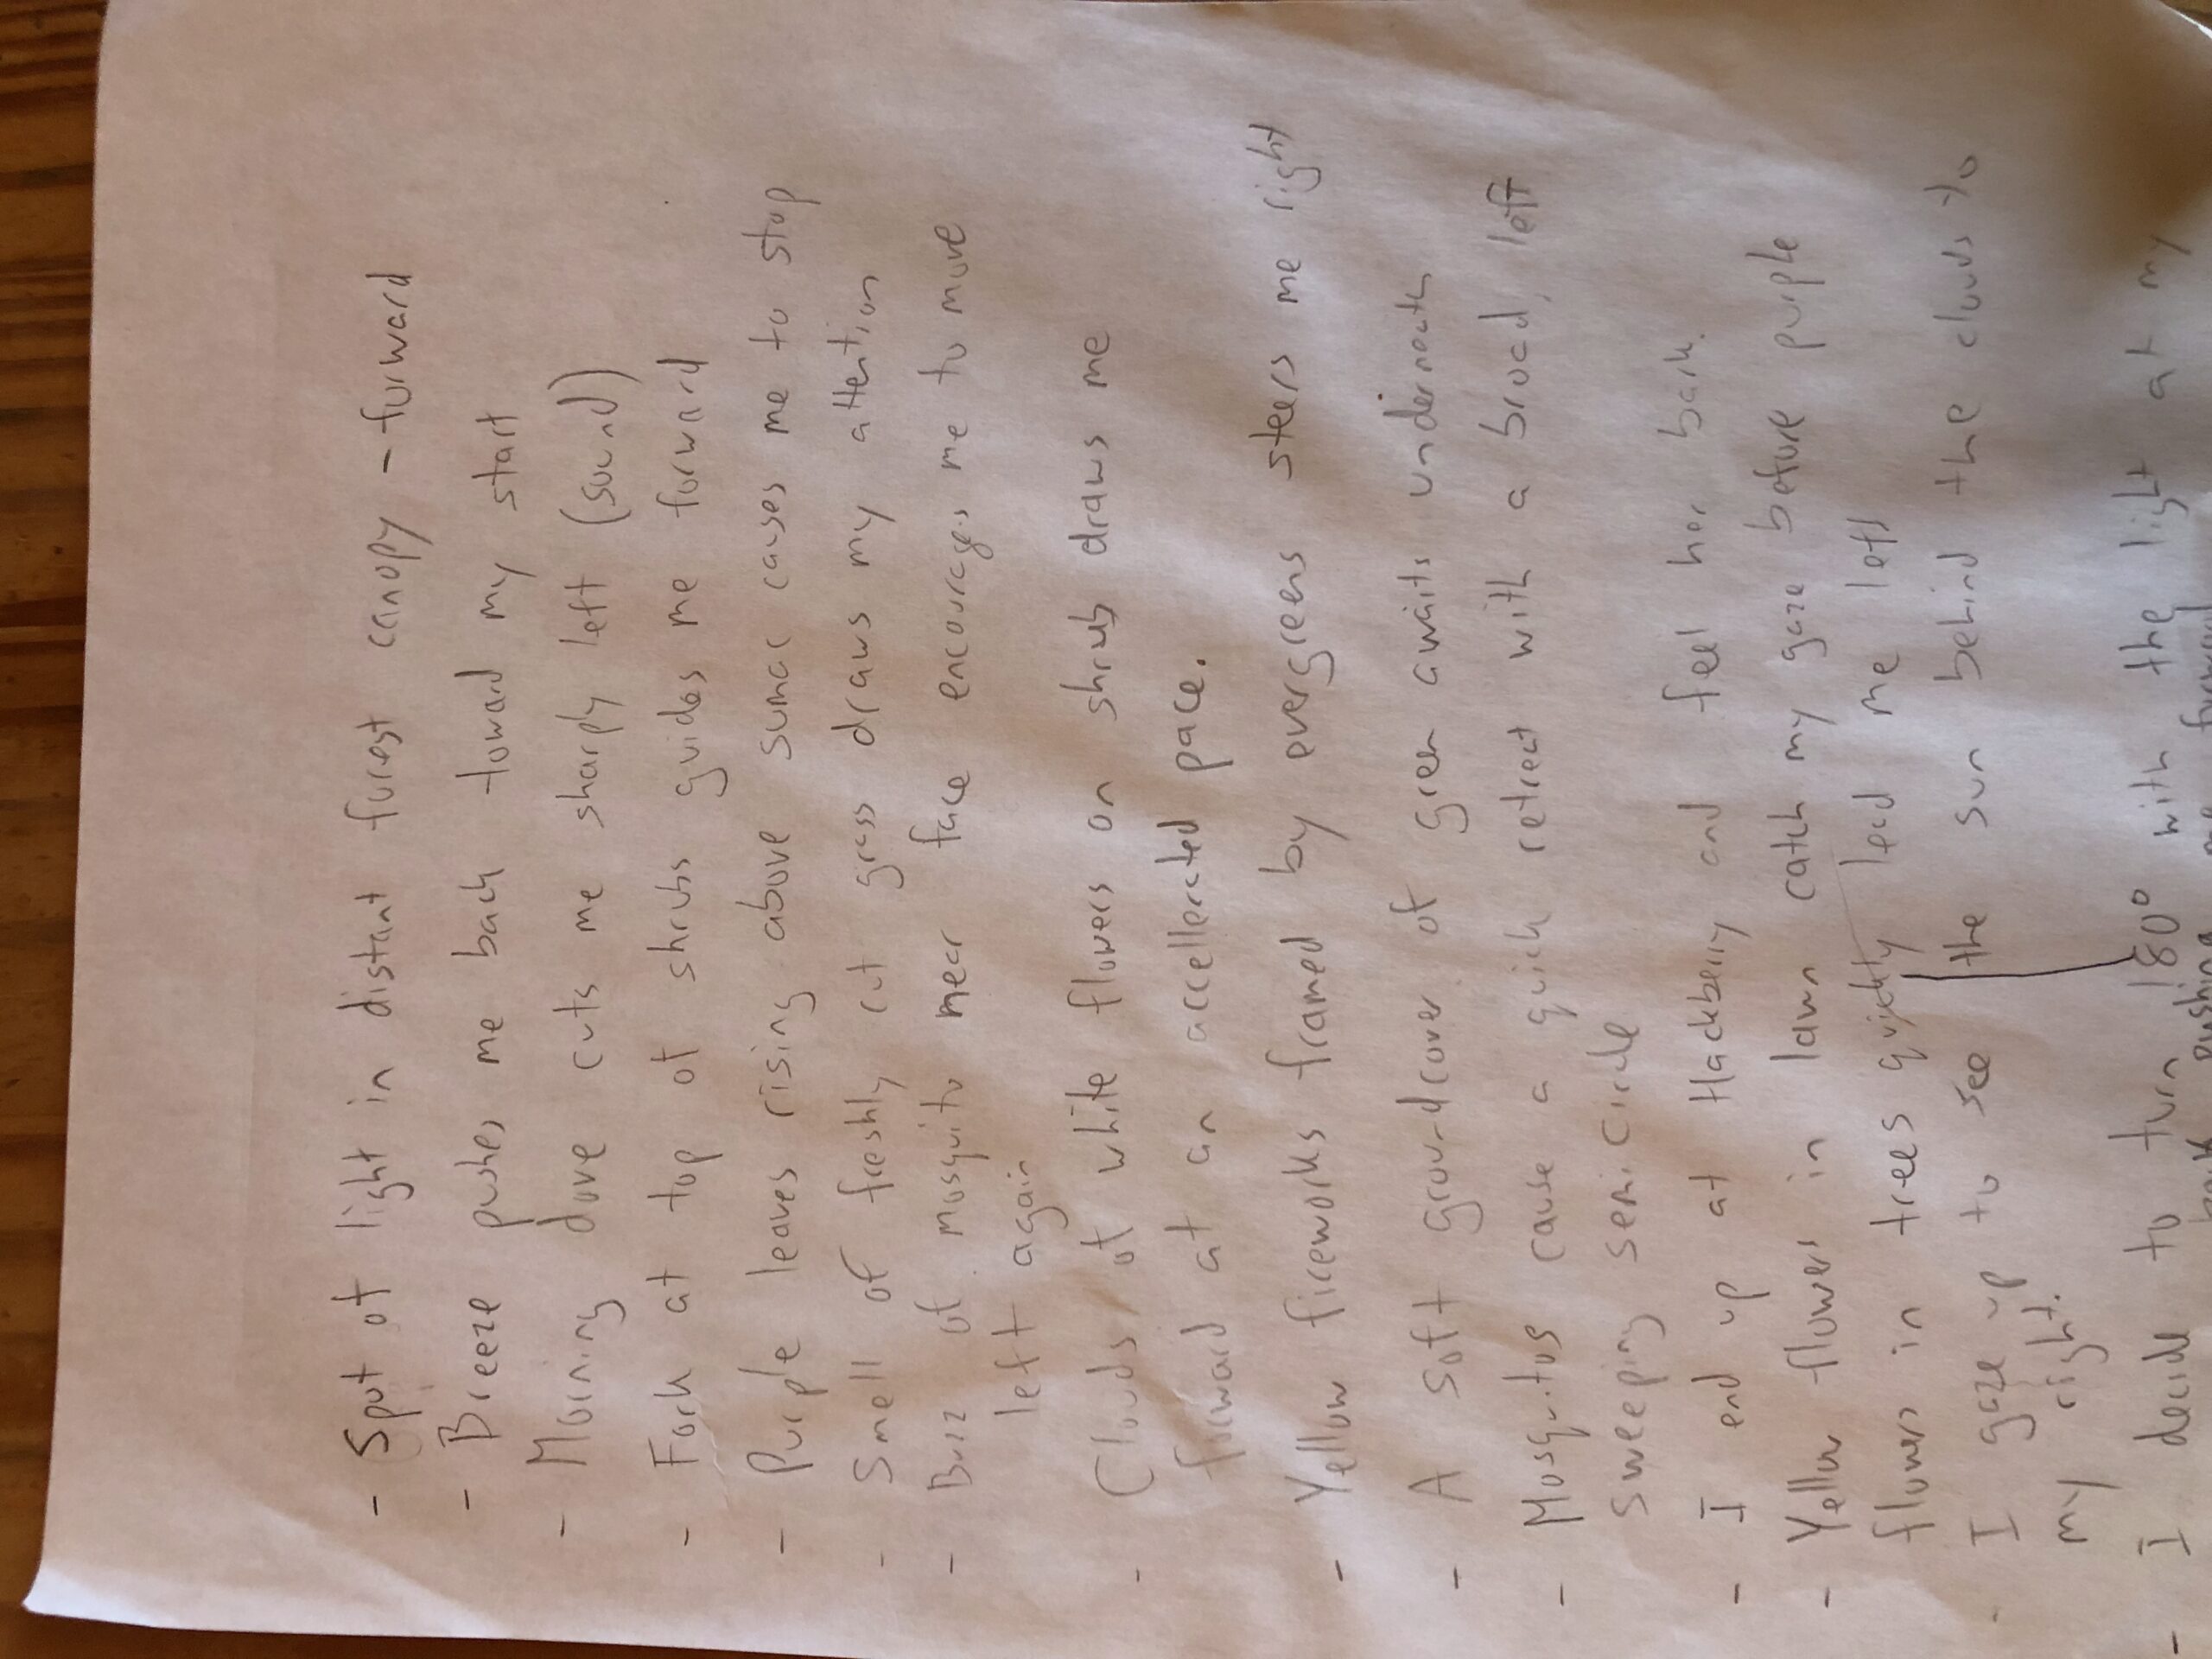 - Spot of light in distant forest canopy - forward
- Breeze pushes me back toward my start
- Morning dove cuts me sharply left (sound)
- Fork at top of shrubs guides me forward
- Purple leaves rising above sumac causes me to stop
- Smell of freshly cut grass draws my attention
- Buzz of mosquito near face encourages me to move
left again
- Clouds of white flowers on shrub draws me
forward at an accellerated pace.
- Yellow fireworks framed by evergreens steers me right
- A soft groundcover of green awaits underneath
- Mosquitos cause a quick retreat with a broad, left
sweeping semicircle
- I end up at Hackberry and feel her bark.
- Yellow flowers in lawn catch my gaze before purple
flowers in trees quickly lead me left
- I gaze up to see the sun behind the clouds to
my right.
- I decide to turn 180° with the light at my
back pushing me forward